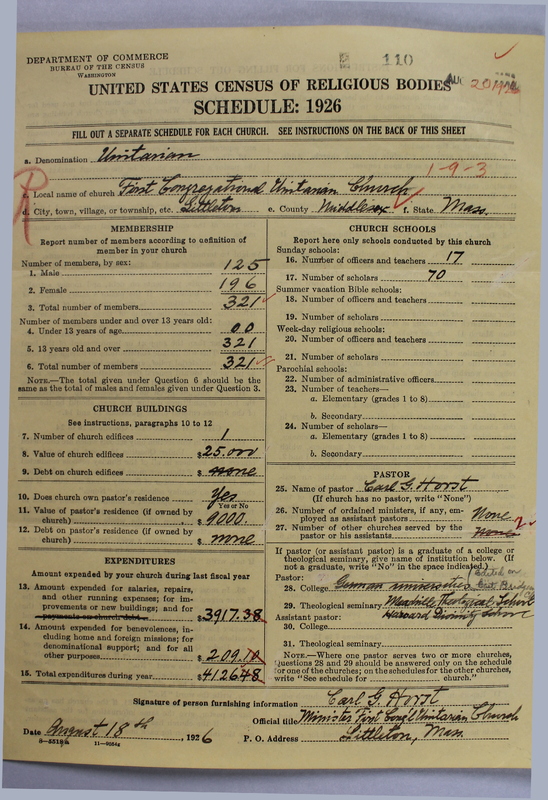 DEPARTMENT OF COMMERCE
BUREAU OF THE CENSUS
WASHINGTON
110
AUG 20 1926
UNITED STATES CENSUS OF RELIGIOUS BODIES
SCHEDULE: 1926
FILL OUT A SEPARATE SCHEDULE FOR EACH CHURCH. SEE INSTRUCTIONS ON THE BACK OF THIS SHEET
a. Denomination Unitarian
1-9-3
c. Local name of church First Congregational Unitarian Church
d. City, town, village, or township, etc. Littleton e. County Middlesex f. State Mass.
MEMBERSHIP
Report number of members according to definition of
member in your church
Number of members, by sex:
1. Male 125
2. Female 196
3. Total number of members 321
Number of members under and over 13 years old:
4. Under 13 years of age 00
5. 13 years old and over 321
6. Total number of members 321
NOTE.—The total given under Question 6 should be the
same as the total of males and females given under Question 3.
CHURCH BUILDINGS
See instructions, paragraphs 10 to 12
7. Number of church edifices 1
8. Value of church edifices $25.000
9. Debt on church edifices $ none
10. Does church own pastor's residence Yes
Yes or No
11. Value of pastor's residence (if owned by
church) $ 4000.
12. Debt on pastor's residence (if owned by
church) $ none
EXPENDITURES
Amount expended by your church during last fiscal year
13. Amount expended for salaries, repairs,
and other running expenses; for im-
provements or new buildings; and for
payments on church debt $3917.38
14. Amount expended for benevolences, in-
cluding home and foreign missions; for
denominational support; and for all
other purposes $209.10
15. Total expenditures during year $4126.48
CHURCH SCHOOLS
Report here only schools conducted by this church
Sunday schools:
16. Number of officers and teachers 17
17. Number of scholars 70
Summer vacation Bible schools:
18. Number of officers and teachers
19. Number of scholars
Week-day religious schools:
20. Number of officers and teachers
21. Number of scholars
Parochial schools:
22. Number of administrative officers
23. Number of teachers—
a. Elementary (grades 1 to 8)
b. Secondary
24. Number of scholars—
a. Elementary (grades 1 to 8)
b. Secondary
PASTOR
25. Name of pastor Carl G. Horst
(If church has no pastor, write "None")
26. Number of ordained ministers, if any, em-
ployed as assistant pastors None
27. Number of other churches served by the
pastor or his assistants None 2
If pastor (or assistant pastor) is a graduate of a college or
theological seminary, give name of institution below. (If
not a graduate, write "No" in the space indicated.)
Pastor:
28. College German universities
29. Theological seminary Meadville Theological School
Harvard Divinity School
Assistant pastor:
30. College
31. Theological seminary
NOTE.—Where one pastor serves two or more churches,
Questions 28 and 29 should be answered only on the schedule
for one of the churches; on the schedules for the other churches,
write "See schedule for church."
Signature of person furnishing information Carl G. Horst
Official title Minister First Cong'l Unitarian Church
Date August 18th, 1926 P. O. Address Littleton, Mass.